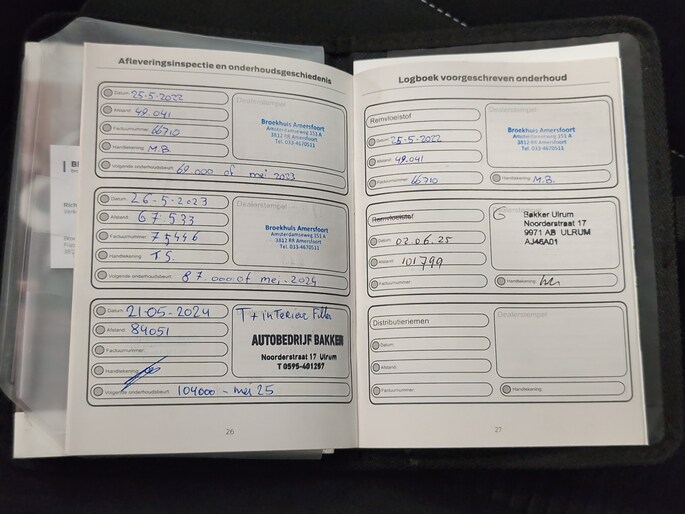 Afleveringsinspectie en onderhoudsgeschiedenis
Datum: 25-5-2022
Afstand: 49.041
Factuurnummer: 66710
Handtekening: M.B.
Volgende onderhoudsbeurt: 69.000 of mei 2023
Dealerstempel
Broekhuis Amersfoort
Amsterdamseweg 151 A
3812 RR Amersfoort
Tel. 033-4670511
Datum: 26-5-2023
Afstand: 67533
Factuurnummer: 75446
Handtekening: T.S.
Volgende onderhoudsbeurt: 87.000 of mei. 2024
Dealerstempel
Broekhuis Amersfoort
Amsterdamseweg 151 A
3812 RR Amersfoort
Tel. 033-4670511
Datum: 21-05-2024
Afstand: 84051
Factuurnummer:
Handtekening:
Volgende onderhoudsbeurt: 104000 - mei 25
T + interieur filter
AUTOBEDRIJF BAKKER
Noorderstraat 17 Ulrum
T 0595-401297
26
Logboek voorgeschreven onderhoud
Remvloeistof
Datum: 25-5-2022
Afstand: 49.041
Factuurnummer: 66710
Dealerstempel
Broekhuis Amersfoort
Amsterdamseweg 151 A
3812 RR Amersfoort
Tel. 033-4670511
Handtekening: M.B.
Remvloeistof
Datum: 02.06.25
Afstand: 101799
Factuurnummer:
Bakker Ulrum
Noorderstraat 17
9971 AB ULRUM
AJ46A01
Handtekening:
Distributieriemen
Datum:
Afstand:
Factuurnummer:
Dealerstempel
Handtekening:
27